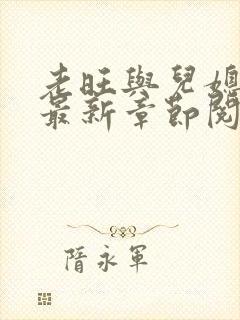 老旺與兒媳
最新章節閱
隋永軍